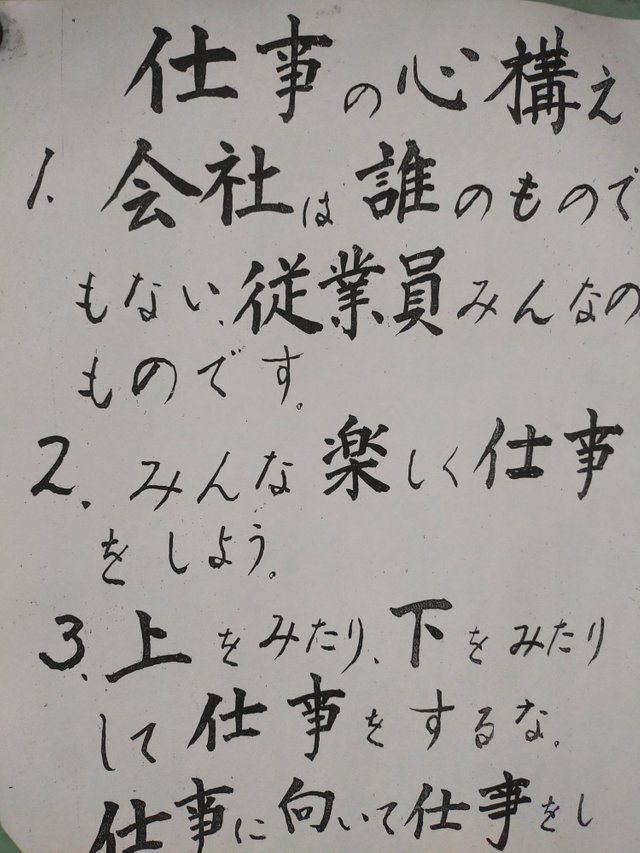 仕事の心構え
1. 会社は誰のもので
もない、従業員みんなの
ものです。
2. みんな楽しく仕事
をしよう。
3. 上をみたり、下をみたり
して仕事をするな。
仕事に向いて仕事をし